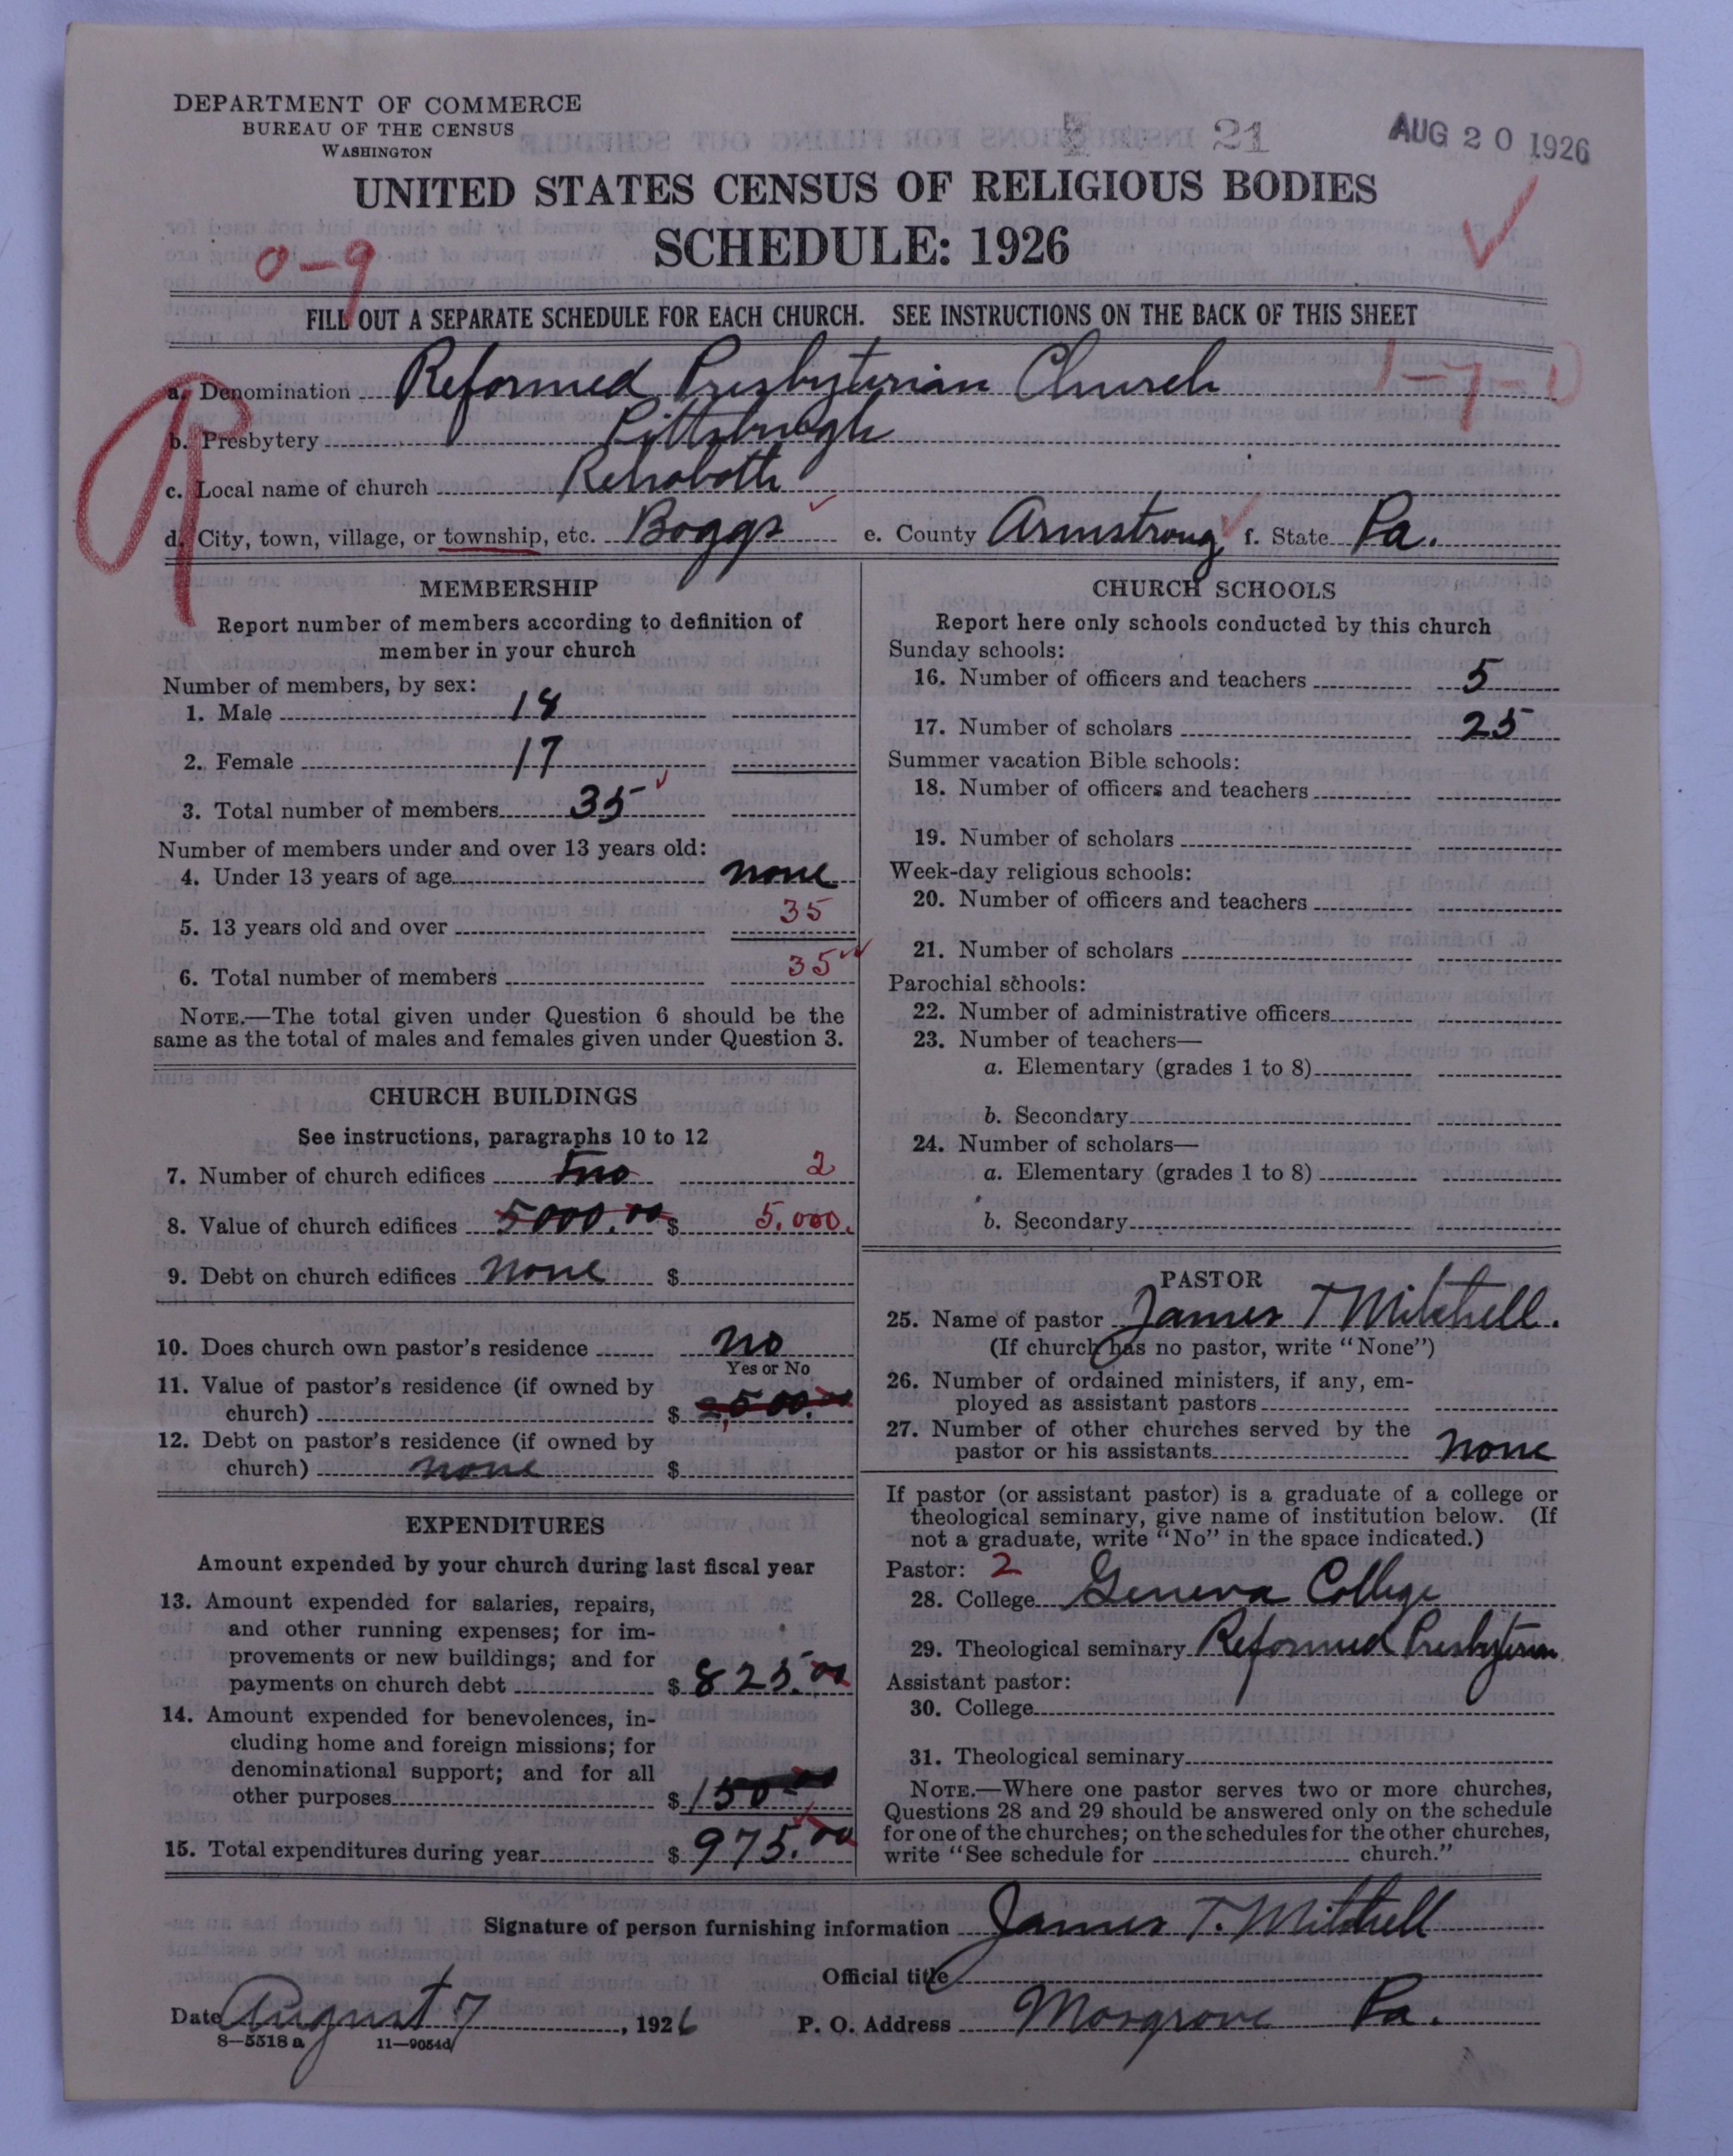 DEPARTMENT OF COMMERCE
BUREAU OF THE CENSUS
WASHINGTON
21
AUG 20 1926
UNITED STATES CENSUS OF RELIGIOUS BODIES
SCHEDULE: 1926
0-9
FILL OUT A SEPARATE SCHEDULE FOR EACH CHURCH. SEE INSTRUCTIONS ON THE BACK OF THIS SHEET
1-7-0
a. Denomination Reformed Presbyterian Church
b. Presbytery Pittsburgh
c. Local name of church Rehoboth
d. City, town, village, or township, etc. Boggs e. County Armstrong f. State Pa.
MEMBERSHIP
Report number of members according to definition of
member in your church
Number of members, by sex:
1. Male 18
2. Female 17
3. Total number of members 35
Number of members under and over 13 years old:
4. Under 13 years of age none
5. 13 years old and over 35
6. Total number of members 35
NOTE.—The total given under Question 6 should be the
same as the total of males and females given under Question 3.
CHURCH BUILDINGS
See instructions, paragraphs 10 to 12
7. Number of church edifices Two 2
8. Value of church edifices 5000.00 $ 5.000.
9. Debt on church edifices none $
10. Does church own pastor's residence no
Yes or No
11. Value of pastor's residence (if owned by
church) $ 2,500.00
12. Debt on pastor's residence (if owned by
church) none $
EXPENDITURES
Amount expended by your church during last fiscal year
13. Amount expended for salaries, repairs,
and other running expenses; for im-
provements or new buildings; and for
payments on church debt $ 825.00
14. Amount expended for benevolences, in-
cluding home and foreign missions; for
denominational support; and for all
other purposes $ 150
15. Total expenditures during year $ 975.00
CHURCH SCHOOLS
Report here only schools conducted by this church
Sunday schools:
16. Number of officers and teachers 5
17. Number of scholars 25
Summer vacation Bible schools:
18. Number of officers and teachers
19. Number of scholars
Week-day religious schools:
20. Number of officers and teachers
21. Number of scholars
Parochial schools:
22. Number of administrative officers
23. Number of teachers—
a. Elementary (grades 1 to 8)
b. Secondary
24. Number of scholars—
a. Elementary (grades 1 to 8)
b. Secondary
PASTOR
25. Name of pastor James T Mitchell.
(If church has no pastor, write "None")
26. Number of ordained ministers, if any, em-
ployed as assistant pastors
27. Number of other churches served by the
pastor or his assistants none
If pastor (or assistant pastor) is a graduate of a college or
theological seminary, give name of institution below. (If
not a graduate, write "No" in the space indicated.)
Pastor: 2
28. College Geneva College
29. Theological seminary Reformed Presbyterian
Assistant pastor:
30. College
31. Theological seminary
NOTE.—Where one pastor serves two or more churches,
Questions 28 and 29 should be answered only on the schedule
for one of the churches; on the schedules for the other churches,
write "See schedule for church."
Signature of person furnishing information James T. Mitchell
Official title
Date August 7, 1926 P. O. Address Mosgrove Pa.
8—5518 a 11—9054d